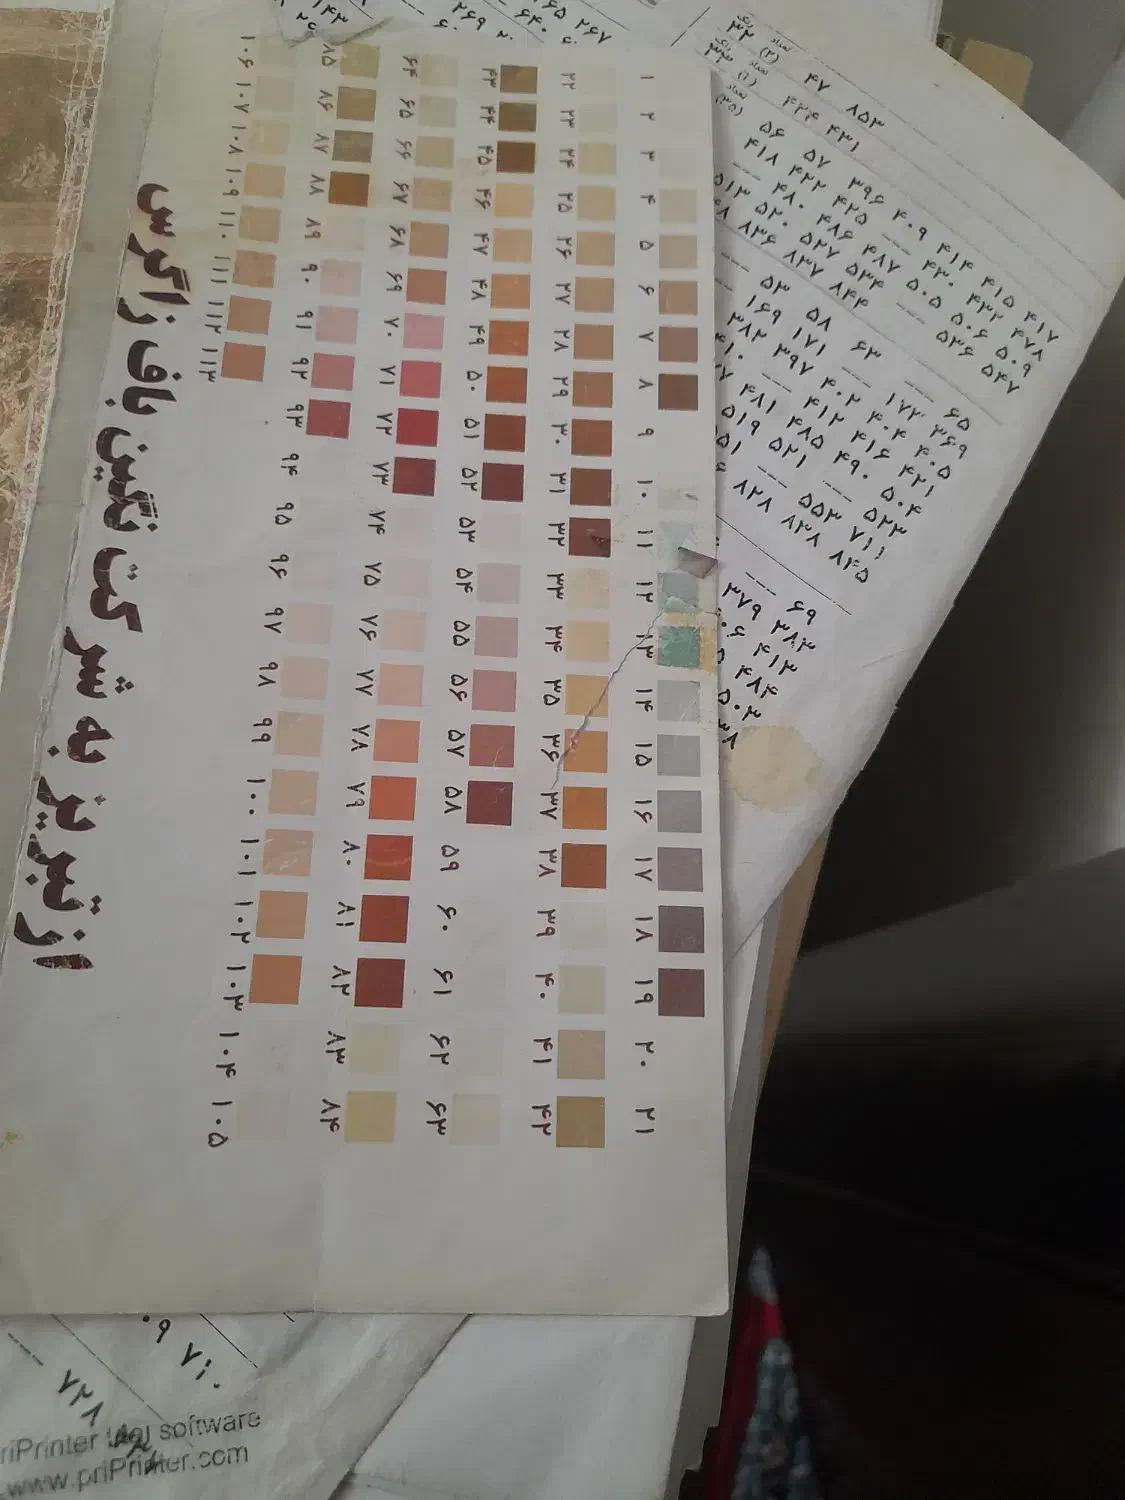 از تبریز به شرکت نگین باف زاگرس
۱
۲
۳
۴
۵
۶
۷
۸
۹
۱۰
۱۱
۱۲
۱۳
۱۴
۱۵
۱۶
۱۷
۱۸
۱۹
۲۰
۲۱
۲۲
۲۳
۲۴
۲۵
۲۶
۲۷
۲۸
۲۹
۳۰
۳۱
۳۲
۳۳
۳۴
۳۵
۳۶
۳۷
۳۸
۳۹
۴۰
۴۱
۴۲
۴۳
۴۴
۴۵
۴۶
۴۷
۴۸
۴۹
۵۰
۵۱
۵۲
۵۳
۵۴
۵۵
۵۶
۵۷
۵۸
۵۹
۶۰
۶۱
۶۲
۶۳
۶۴
۶۵
۶۶
۶۷
۶۸
۶۹
۷۰
۷۱
۷۲
۷۳
۷۴
۷۵
۷۶
۷۷
۷۸
۷۹
۸۰
۸۱
۸۲
۸۳
۸۴
۸۵
۸۶
۸۷
۸۸
۸۹
۹۰
۹۱
۹۲
۹۳
۹۴
۹۵
۹۶
۹۷
۹۸
۹۹
۱۰۰
۱۰۱
۱۰۲
۱۰۳
۱۰۴
۱۰۵
۱۰۶
۱۰۷
۱۰۸
۱۰۹
۱۱۰
۱۱۱
۱۱۲
۱۱۳
۴۷ ۸۵۳
۴۲۴ ۴۳۱
۵۶ ۵۷ ۳۹۶ ۴۰۹ ۴۱۴ ۴۱۵ ۴۱۷
۴۱۸ ۴۲۲ ۴۲۵ --- ۴۳۰ ۴۳۲ ۴۷۸
--- ۴۸۰ ۴۸۶ ۴۸۷ ۵۰۵ ۵۰۶ ۵۰۹
۵۱۳ ۵۲۰ ۵۲۷ ۵۳۴ --- ۵۳۶ ۵۴۷
۸۳۶ ۸۳۷ ۸۴۴
۵۳ ۵۸ ۶۳ --- ۶۵
۱۶۹ ۱۷۱ --- ۱۷۲ ۳۶۹
۳۸۲ ۳۹۷ ۴۰۲ ۴۰۴ ۴۰۵
--- ۴۱۲ ۴۱۶ ۴۲۱
۴۸۱ ۴۸۵ ۴۹۰ ۵۰۴
۵۱۹ ۵۲۱ --- ۵۲۳
--- ۵۵۳ ۷۱۱
۸۲۸ ۸۳۸ ۸۴۵
--- ۶۹
۳۷۹ ۳۸۳
۴۱۳
۴۸۴
۷۲۸
priPrinter software
www.priPrinter.com